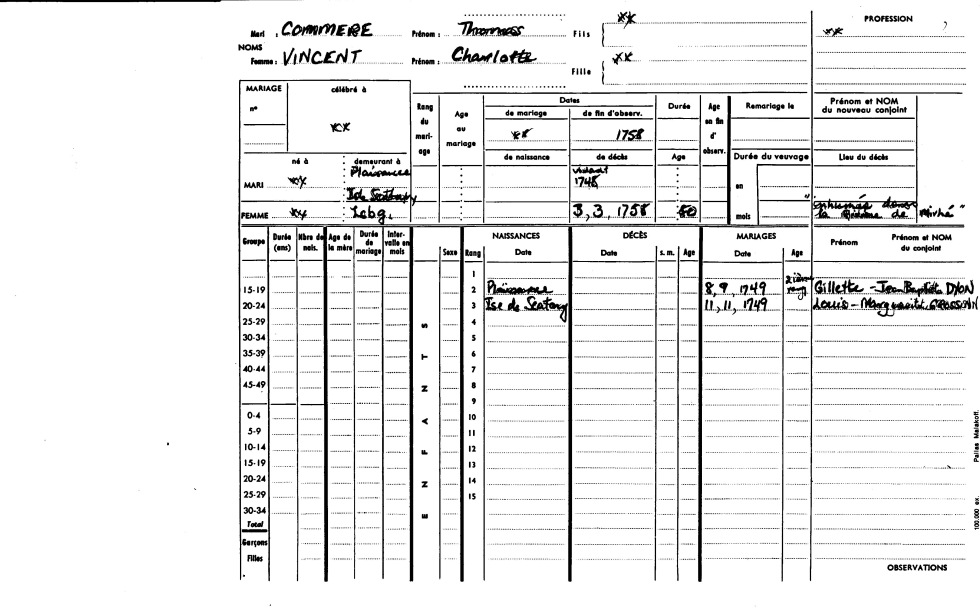 Mari : COMMERE Prénom : Thommas Fils xx
NOMS
Femme : VINCENT Prénom : Charlotte Fille xx
PROFESSION
xx
MARIAGE célébré à
n° xx
Rang du mari-age
Age au mariage
Dates
de mariage de fin d'observ.
xx 1758
de naissance de décès
vivant
1748
3, 3, 1758
Durée
Age
80
Age en fin d' observ.
Remariage le
Durée du veuvage
en "
mois
Prénom et NOM
du nouveau conjoint
Lieu du décès
inhumée dans
la de Mirhé "
né à demeurant à
MARI xx Plaisance
Isle Scatary
FEMME xx Lebg.
Groupe Durée (ans) Nbre de nais. Age de la mère Durée de mariage Inter-valle en mois
Sexe Rang
NAISSANCES
Date
DÉCÈS
Date s. m. Age
MARIAGES
Date Age
Prénom Prénom et NOM
du conjoint
1
15-19 2 Plaisance 8, 9, 1749 2ième rang Gillette - Jean Baptiste DYON
20-24 3 Isle de Scatary 11, 11, 1749 Louis - Marguerite
25-29 4
30-34 5
35-39 6
40-44 7
45-49 8
9
0-4 10
5-9 11
10-14 12
15-19 13
20-24 14
25-29 15
30-34
Total
Garçons
Filles
E N F A N T S
OBSERVATIONS
100.000 ex. Pallas Malakoff.